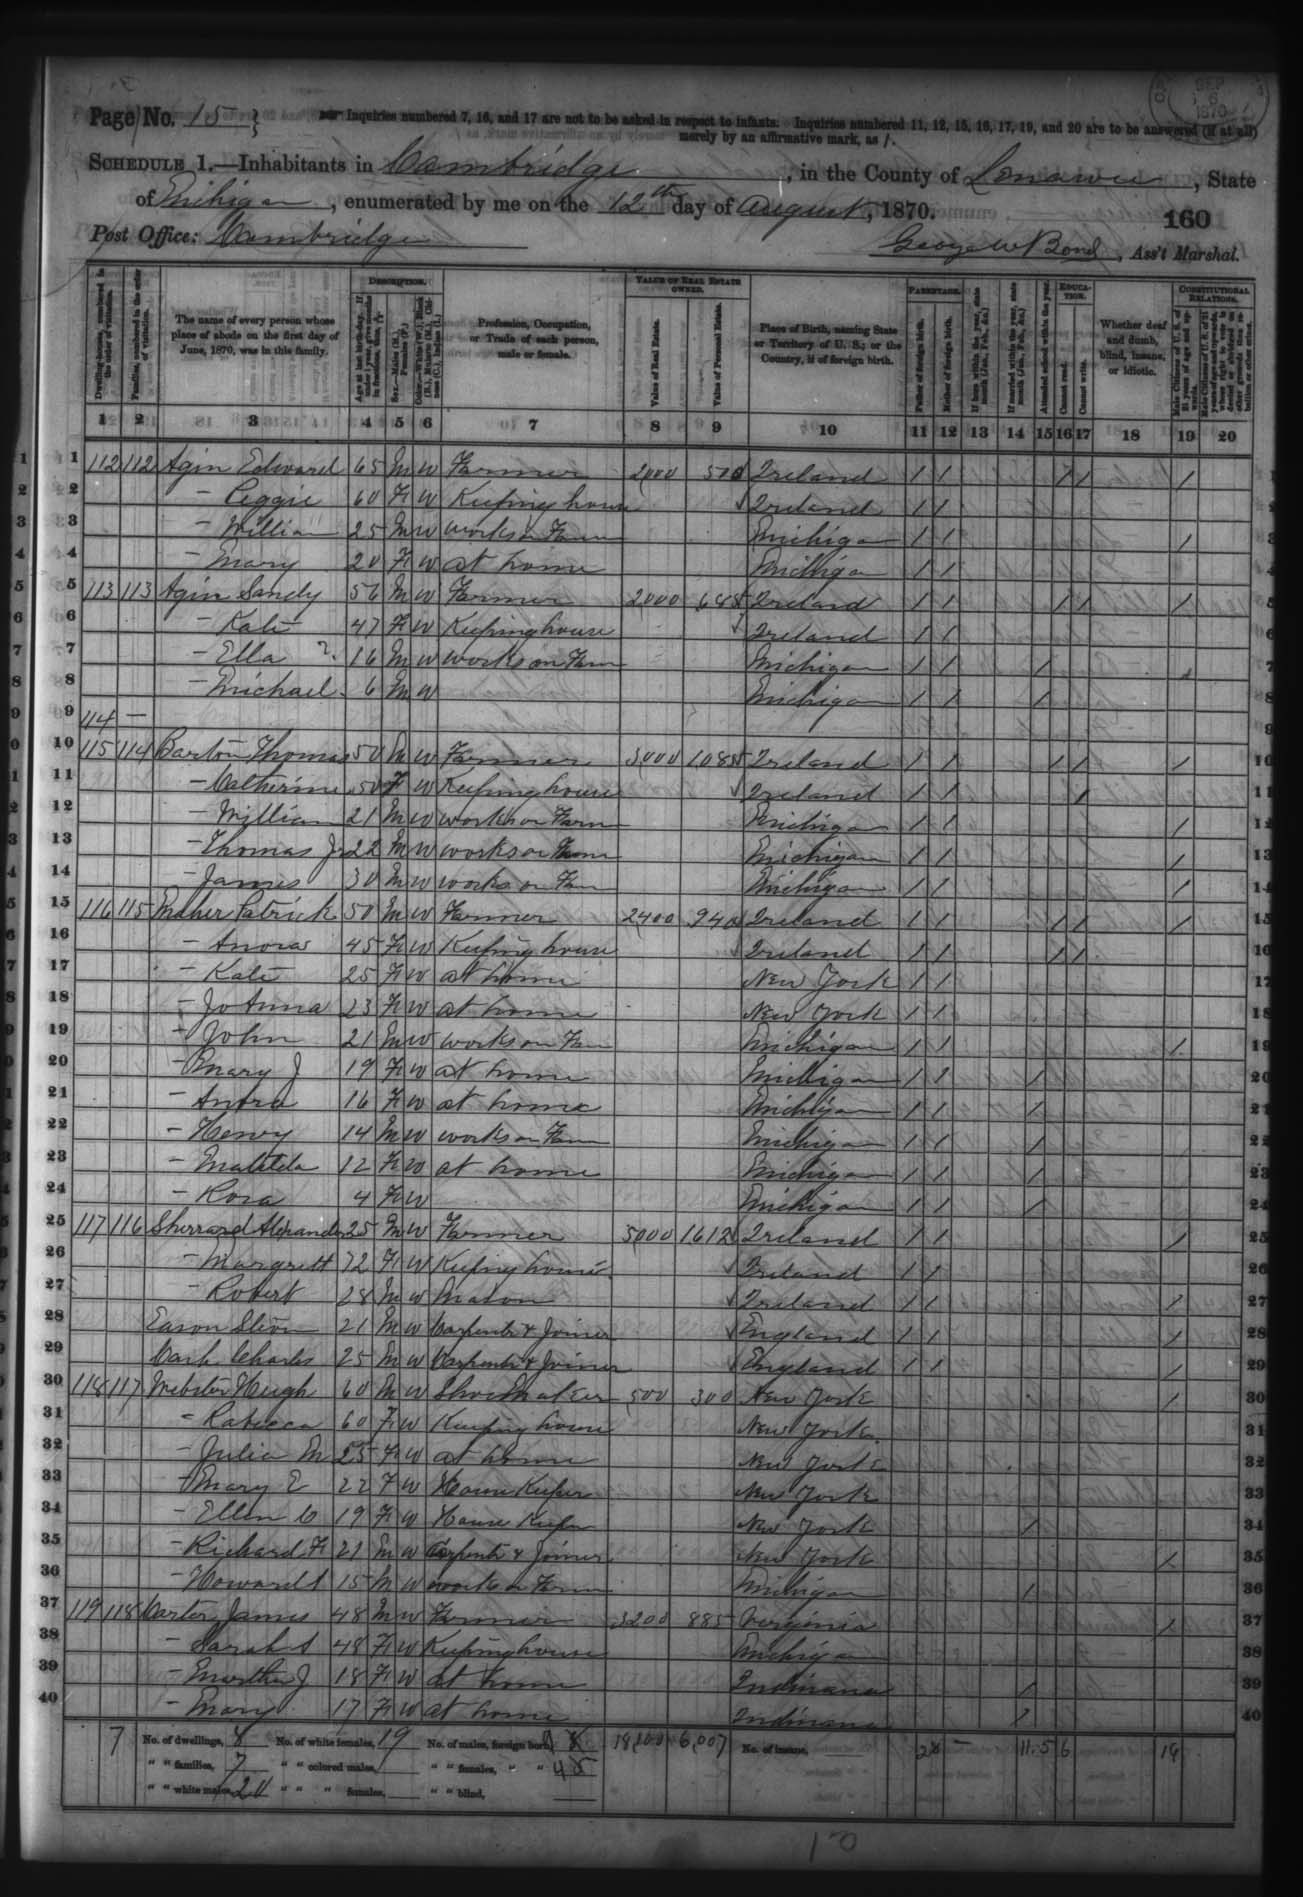 Page No. 15
Inquiries numbered 7, 16, and 17 are not to be asked in respect to infants. Inquiries numbered 11, 12, 15, 16, 17, 19, and 20 are to be answered (if at all)
merely by an affirmative mark, as /.
SCHEDULE 1.—Inhabitants in Cambridge, in the County of Lenawee, State
of Michigan, enumerated by me on the 12th day of August, 1870.
160
Post Office: Cambridge
George W Bond, Ass't Marshal.
SEP 6 1870
Dwelling-houses, numbered in the order of visitation.
Families, numbered in the order of visitation.
The name of every person whose place of abode on the first day of June, 1870, was in this family.
DESCRIPTION.
Age at last birth-day. If under 1 year, give months in fractions, thus, 3/12
Sex.—Males (M.), Females (F.)
Color.—White (W.), Black (B.), Mulatto (M.), Chinese (C.), Indian (I.)
Profession, Occupation, or Trade of each person, male or female.
VALUE OF REAL ESTATE OWNED.
Value of Real Estate.
Value of Personal Estate.
Place of Birth, naming State or Territory of U. S.; or the Country, if of foreign birth.
PARENTAGE.
Father of foreign birth.
Mother of foreign birth.
If born within the year, state month (Jan., Feb., &c.)
If married within the year, state month (Jan., Feb., &c.)
EDUCATION.
Attended school within the year.
Cannot read.
Cannot write.
Whether deaf and dumb, blind, insane, or idiotic.
CONSTITUTIONAL RELATIONS.
Male Citizens of U. S. of 21 years of age and upwards.
1 2 3 4 5 6 7 8 9 10 11 12 13 14 15 16 17 18 19 20
1 112 112 Agin Edward 65 M W Farmer 2000 500 Ireland / / / / / 1
2 — Peggie 60 F W Keeping house Ireland / / 2
3 — William 25 M W works on Farm Michigan / / / 3
4 — Mary 20 F W at home Michigan / / 4
5 113 113 Agin Sandy 56 M W Farmer 2000 645 Ireland / / / / / 5
6 — Kate 47 F W Keeping house Ireland / / 6
7 — Ella ? 16 M W works on Farm Michigan / / / 7
8 — Michael 6 M W Michigan / / / 8
9 114 — 9
10 115 114 Barton Thomas 50 M W Farmer 3000 1,085 Ireland / / / / / 10
11 — Catherine 50 F W Keeping house Ireland / / / 11
12 — William 21 M W works on Farm Michigan / / / 12
13 — Thomas Jr 22 M W works on Farm Michigan / / / 13
14 — James 30 M W works on Farm Michigan / / / 14
15 116 115 Maher Patrick 50 M W Farmer 2400 940 Ireland / / / / / 15
16 — Anora 45 F W Keeping house Ireland / / / / 16
17 — Kate 25 F W at home New York / / 17
18 — JoAnna 23 F W at home New York / / 18
19 — John 21 M W works on Farm Michigan / / / 19
20 — Mary J 19 F W at home Michigan / / / 20
21 — 16 F W at home Michigan / / / 21
22 — Henry 14 M W works on Farm Michigan / / / 22
23 — Matilda 12 F W at home Michigan / / / 23
24 — Rosa 4 F W Michigan / / / 24
25 117 116 Sherrard Alexander 25 M W Farmer 5000 1,612 Ireland / / / 25
26 — Margrett 72 F W Keeping house Ireland / / 26
27 — Robert 28 M W Mason Ireland / / / 27
28 Eason 21 M W Carpenter & Joiner England / / / 28
29 Charles 25 M W Carpenter & Joiner England / / / 29
30 118 117 Webster Hugh 60 M W Shoe Maker 500 300 New York / 30
31 — Rabecca 60 F W Keeping house New York 31
32 — Julia M 25 F W at home New York 32
33 — Mary E 22 F W House Keeper New York 33
34 — Ellen C 19 F W House Keeper New York / 34
35 — Richard F 21 M W Carpenter & Joiner New York / 35
36 — Howard 15 M W works on Farm Michigan / 36
37 119 118 Carter James 48 M W Farmer 3200 885 Virginia / 37
38 — Sarah A 48 F W Keeping house Michigan 38
39 — Martha J 18 F W at home Indiana / 39
40 — Mary 17 F W at home Indiana / 40
7 No. of dwellings, 8 No. of white females, 19 No. of males, foreign born, 8 No. of insane,
" " families, 7 " " colored males, " " females, " "
" " white males, 20 " " " females, " " blind,
6,007 28 11 5 6